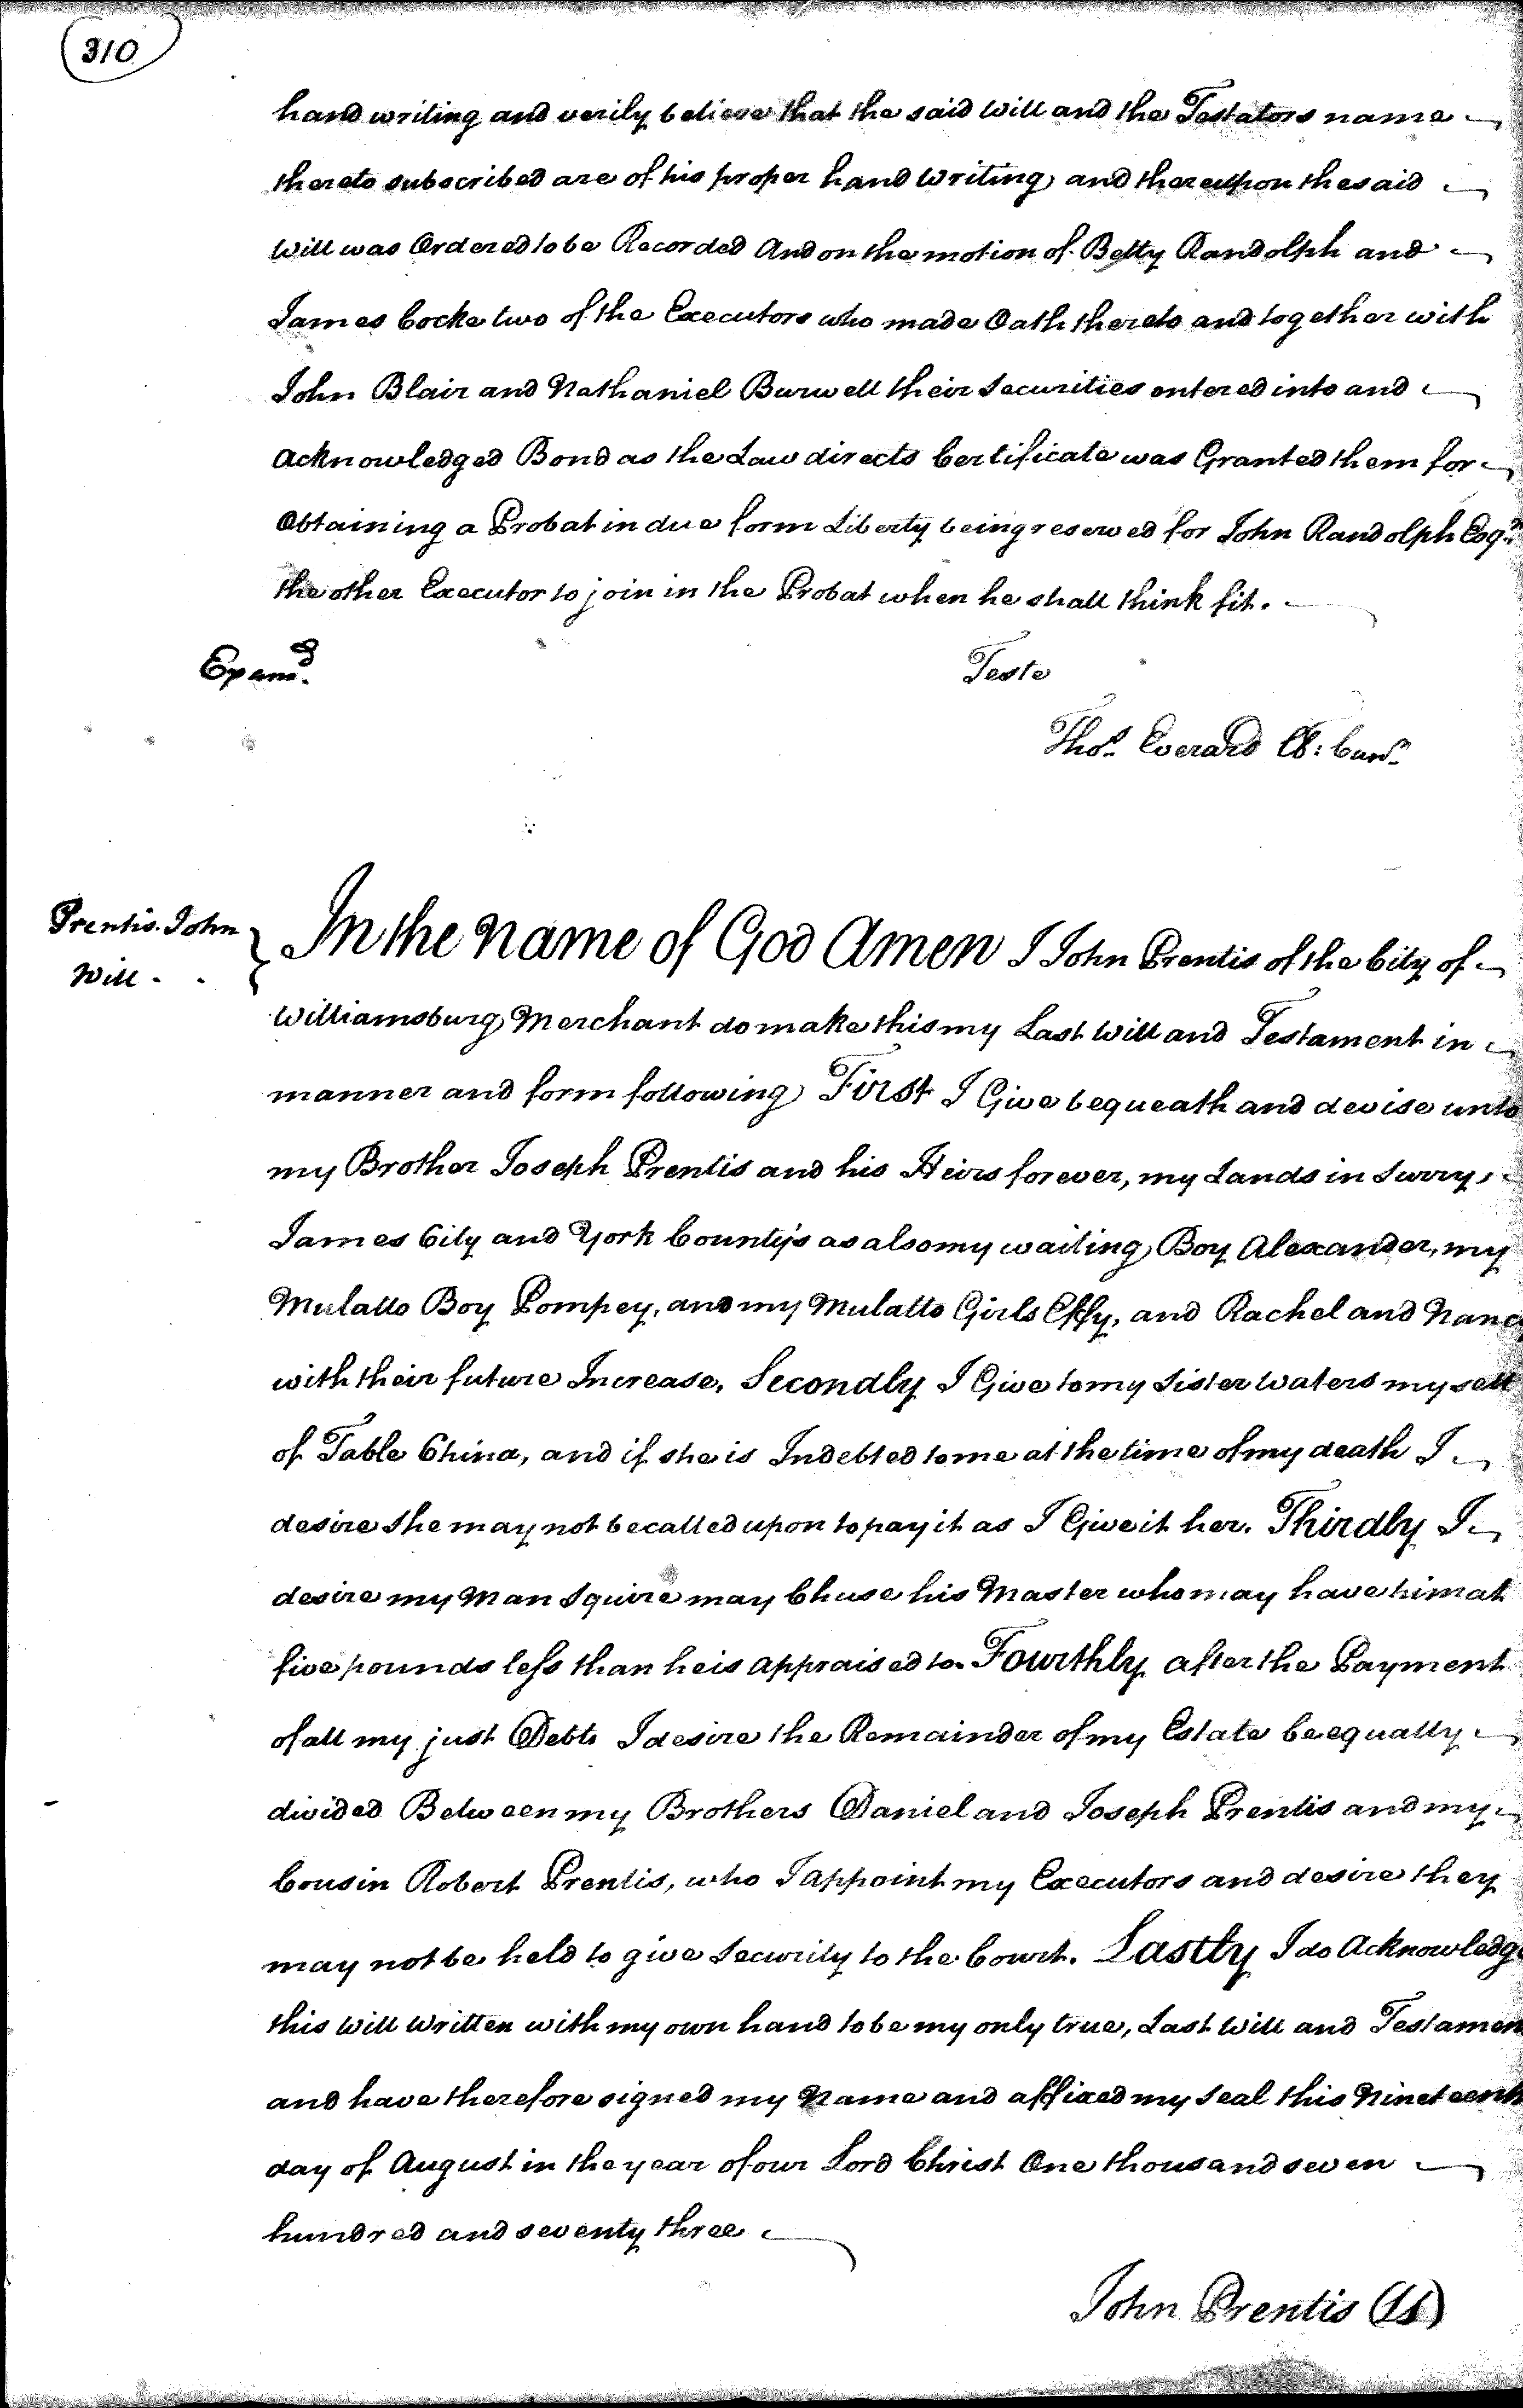 310
hand writing and verily believe that the said Will and the Testators name
thereto subscribed are of his proper hand Writing and thereupon the said
Will was Ordered to be Recorded And on the motion of Betty Randolph and
James Cocke two of the Executors who made Oath thereto and together with
John Blair and Nathaniel Burwell their Securities entered into and
Acknowledged Bond as the Law directs Certificate was Granted them for
Obtaining a Probat in due form Liberty being reserved for John Randolph Esqr.
the other Executor to join in the Probat when he shall think fit.
Examd.
Teste
Thos. Everard Cl: Curn.
Prentis. John
Will
In the Name of God Amen I John Prentis of the City of
Williamsburg Merchant do make this my Last Will and Testament in
manner and form following First I Give bequeath and devise unto
my Brother Joseph Prentis and his Heirs forever, my Lands in Surry,
James City and York County's as also my waiting Boy Alexander, my
Mulatto Boy Pompey, and my Mulatto Girls Effy, and Rachel and Nancy
with their future Increase, Secondly I Give to my Sister Waters my sett
of Table China, and if she is Indebted to me at the time of my death I
desire she may not be called upon to pay it as I Give it her. Thirdly I
desire my Man Squire may Chuse his Master who may have him at
five pounds less than he is appraised to. Fourthly after the Payment
of all my just Debts I desire the Remainder of my Estate be equally
divided Between my Brothers Daniel and Joseph Prentis and my
Cousin Robert Prentis, who I appoint my Executors and desire they
may not be held to give Security to the Court. Lastly I do Acknowledge
this Will Written with my own hand to be my only true, Last Will and Testamen
and have therefore signed my Name and affixed my Seal this Nineteenth
day of August in the year of our Lord Christ One thousand seven
hundred and seventy three
John Prentis (LS)